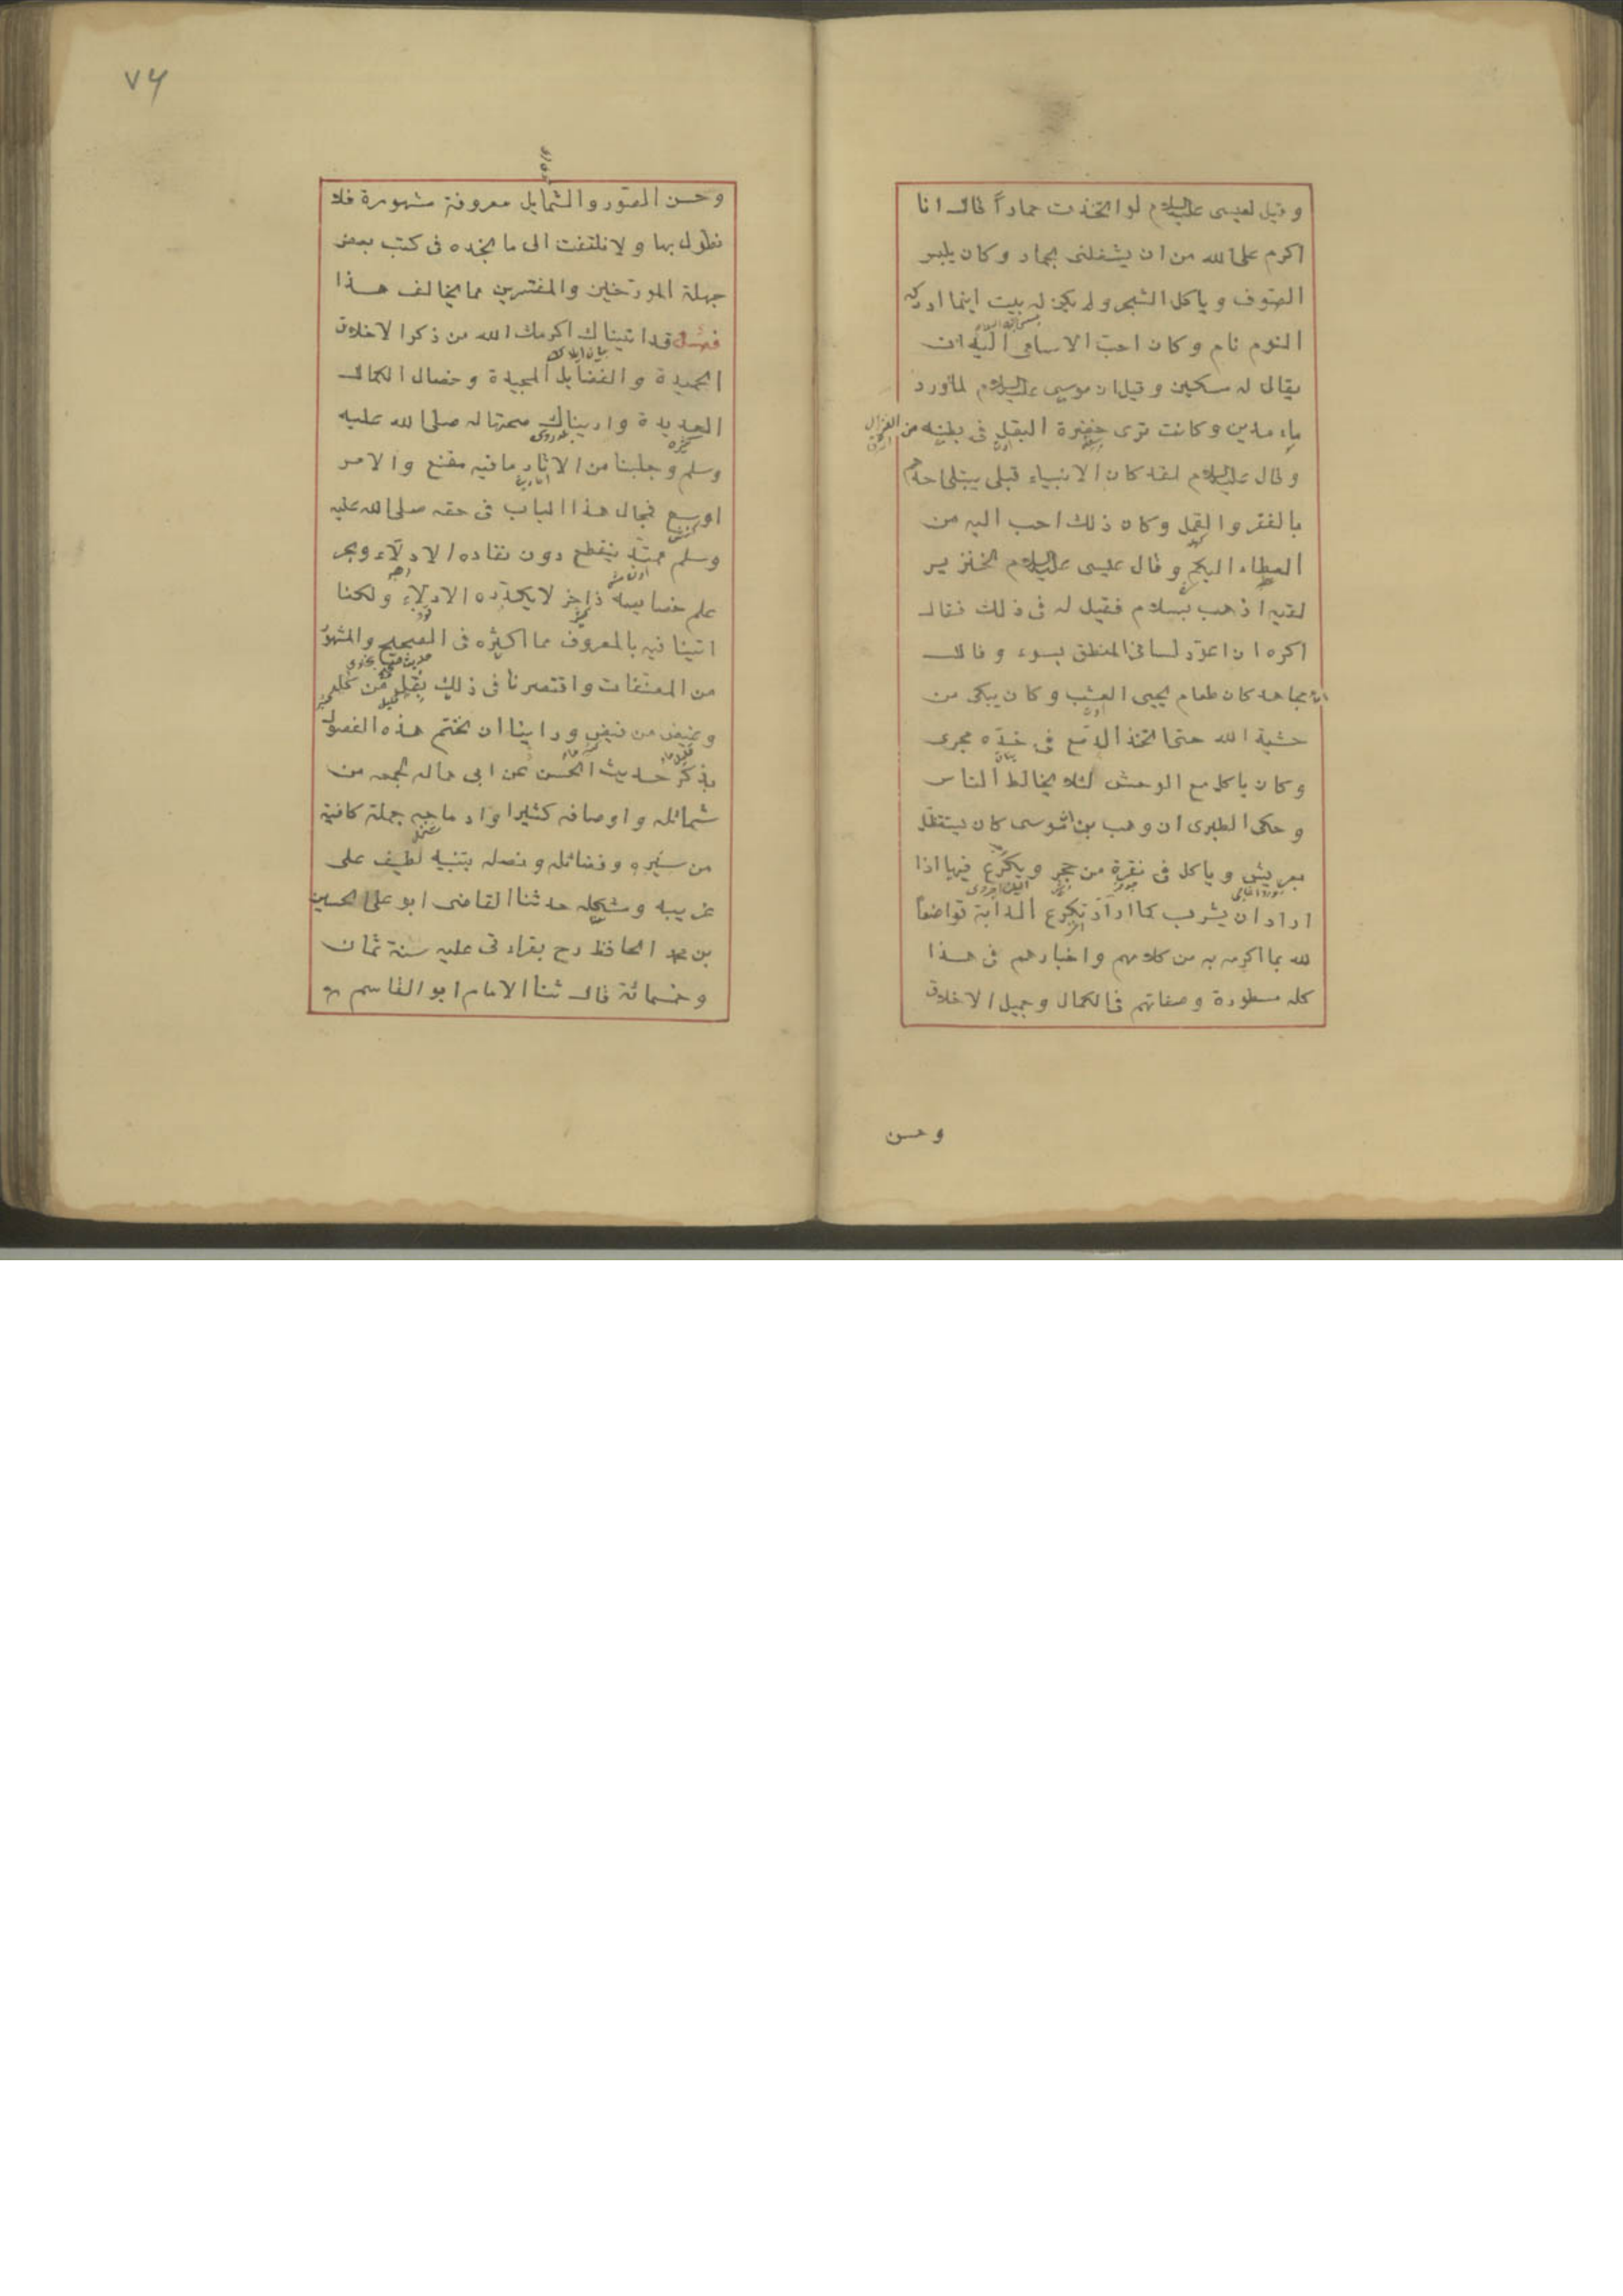 وقيل لعيسى عليه السلام لو اتخذت حماراً قال انا
اكرم على الله من ان يشغلنى بحمار وكان يلبس
الصوف وياكل الشجر ولم يكن له بيت اينما ادركه
النوم نام وكان احبّ الاسامى اليه ان
يقال له مسكين وقيل ان موسى عليه السلام لما ورد
ماء مدين وكانت ترى خضرة البقل فى بطنه من الهزال
وقال عليه السلام لقد كان الانبياء قبلى يبتلى احدهم
بالفقر والقمل وكان ذلك احب اليه من
العطاء اليكم وقال عيسى عليه السلام لخنزير
لقيه اذهب بسلام فقيل له فى ذلك فقال
اكره ان اعوّد لسانى المنطق بسوء وقال
مجاهد كان طعام يحيى العشب وكان يبكى من
خشية الله حتى اتخذ الدّمع فى خدّه مجرى
وكان ياكل مع الوحش لئلا يخالط الناس
وحكى الطبرى ان وهب بن موسى كان يستظل
بعريش وياكل فى نقرة من حجر ويكرع فيها اذا
اراد ان يشرب كما تكرع الدابة تواضعاً
لله بما اكرمه به من كلامهم واخبارهم فى هذا
كله مسطورة وصفاتهم فى الكمال وجميل الاخلاق
وحسن
٧٤
وحسن الصّور والشمايل معروفة مشهورة فلا
نطول بها ولا نلتفت الى ما تجده فى كتب بعض
جهلة المورّخين والمفسّرين مما يخالف هذا
فصل قد اتيناك اكرمك الله من ذكر الاخلاق
الحميدة والفضايل المجيدة وخصال الكمال
العديدة واريناك صحتها له صلى الله عليه
وسلم وجلبنا من الاثار ما فيه مقنع والامر
اوسع فمجال هذا الباب فى حقه صلى الله عليه
وسلم ممتدّ ينقطع دون نفاده الادلّاء وبحر
علم خصايصه زاخر لا يكدّره الادلّاء ولكنا
اتينا فيه بالمعروف مما اكثره فى الصحيح والمشهور
من المصنّفات واقتصرنا فى ذلك بقلّ من كلّ
وغيض من فيض وراينا ان نختم هذه الفصول
بذكر حديث الحسن عن ابى هاله لجمعه من
شمائله واوصافه كثيرا وادماجه جملة كافية
من سيره وفضائله ونصله بتنبيه لطيف على
غريبه ومشكله حدثنا القاضى ابو على الحسين
بن محمد الحافظ رح بقراءتى عليه سنة ثمان
وخمسمائة قال ثنا الامام ابو القاسم